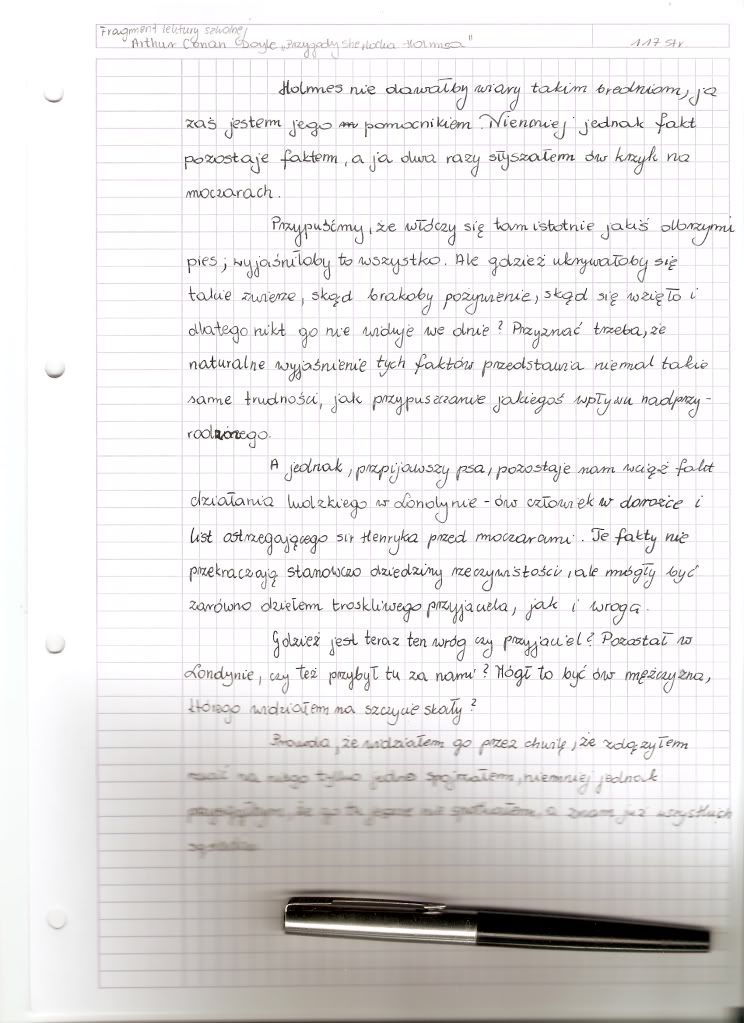 Fragment lektury szkolnej
Arthur Conan Doyle „Przygody Sherlocka Holmsa"
117 str.
Holmes nie dawałby wiary takim bredniom, ja
zaś jestem jego pomocnikiem. Niemniej jednak fakt
pozostaje faktem, a ja dwa razy słyszałem ów krzyk na
moczarach.
Przypuśćmy, że włóczy się tam istotnie jakiś olbrzymi
pies; wyjaśniłoby to wszystko. Ale gdzież ukrywałoby się
takie zwierze, skąd brałoby pożywienie, skąd się wzięło i
dlatego nikt go nie widuje we dnie? Przyznać trzeba, że
naturalne wyjaśnienie tych faktów przedstawia niemal takie
same trudności, jak przypuszczanie jakiegoś wpływu nadprzy-
rodzonego.
A jednak, przpijawszy psa, pozostaje nam wciąż fakt
działania ludzkiego w Londynie - ów człowiek w dorożce i
list ostrzegającego sir Henryka przed moczarami. Te fakty nie
przekraczają stanowczo dziedziny rzeczywistości, ale mogły być
zarówno dziełem troskliwego przyjaciela, jak i wroga.
Gdzież jest teraz ten wróg czy przyjaciel? Pozostał w
Londynie, czy też przybył tu za nami? Mógł to być ów mężczyzna,
którego widziałem na szczycie skały?
Prawda, że widziałem go przez chwilę, że zdążyłem
rzucić na niego tylko jedno spojrzałem, niemniej jednak
że go tu jeszcze nie spotkałem, a znam już wszystkich